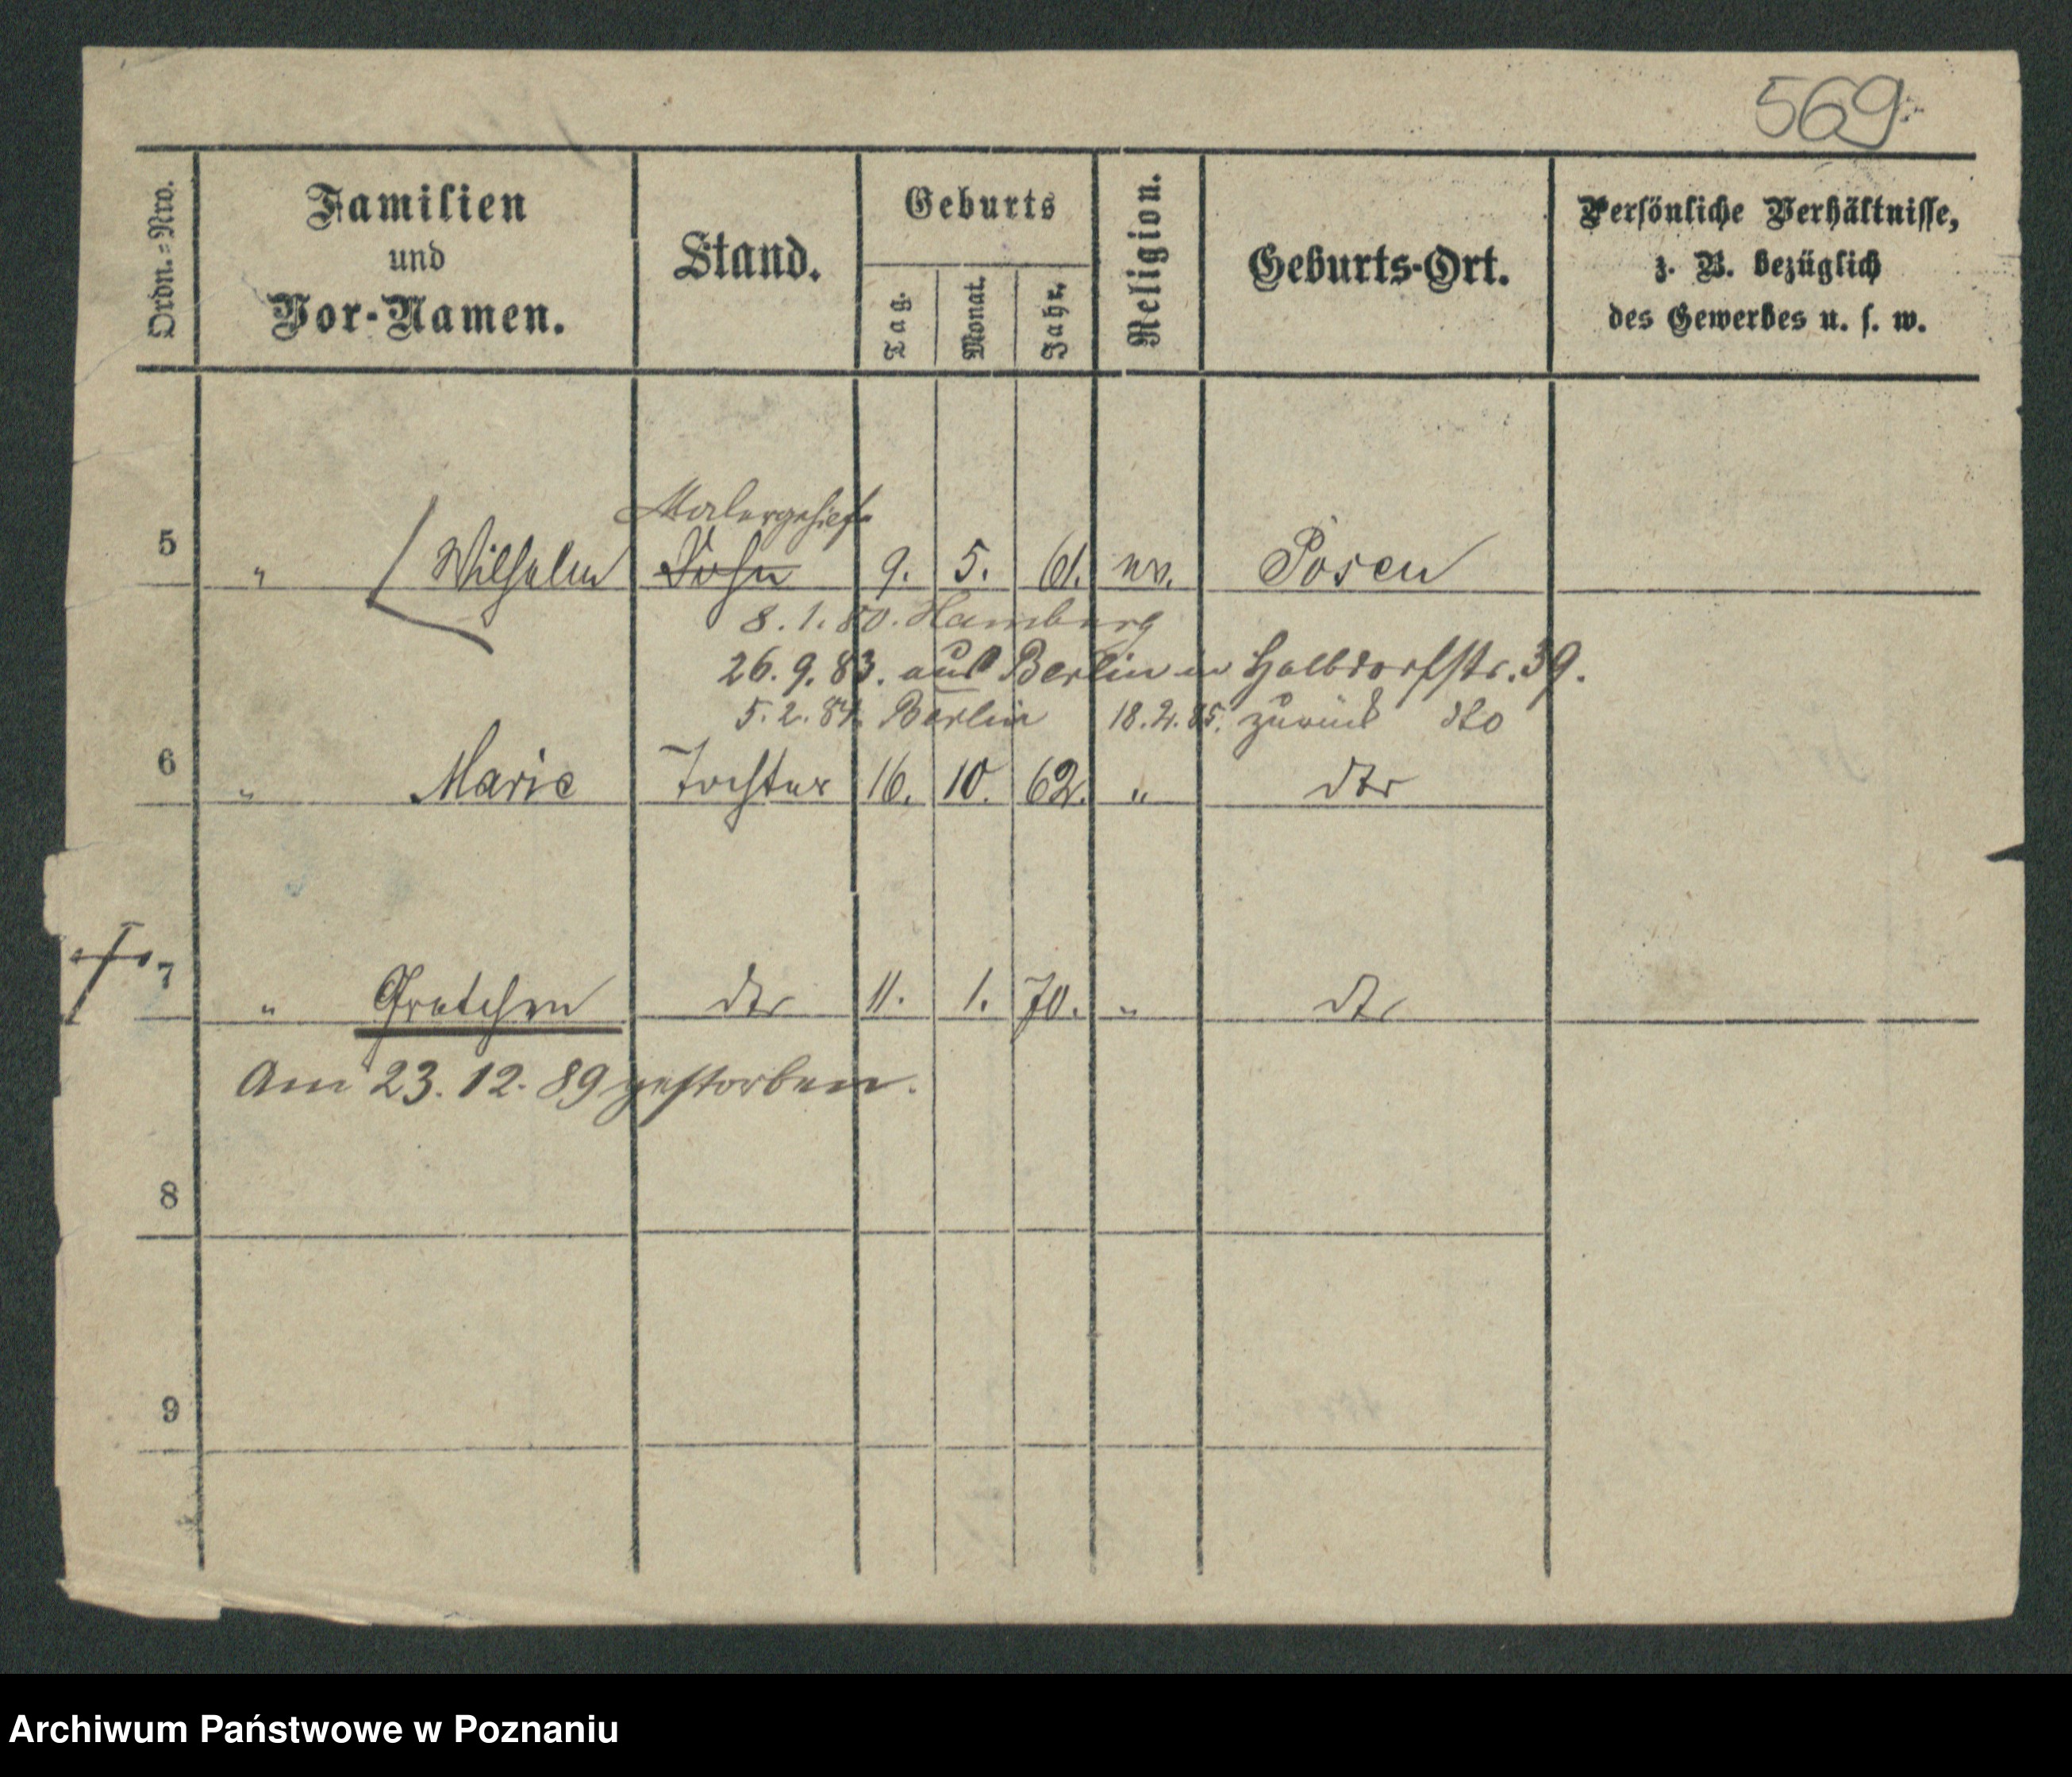 569.
Ordn.=Nro.
Familien
und
Vor-Namen.
Stand.
Geburts
Tag.
Monat.
Jahr.
Religion.
Geburts-Ort.
Persönliche Verhältnisse,
z. B. bezüglich
des Gewerbes u. s. w.
Malergehilfe
5 " Wilhelm Sohn 9. 5. 61. ev. Posen
8. 1. 80. Hamburg
26. 9. 83. aus Berlin in Halbdorfstr. 39.
5. 2. 84. Berlin 18. 2. 85. zurück dto
6 " Marie Tochter 16. 10. 62. " dto
7 " Gretchen dto 11. 1. 70. " dto
Am 23. 12. 89 gestorben.
8
9
Archiwum Państwowe w Poznaniu